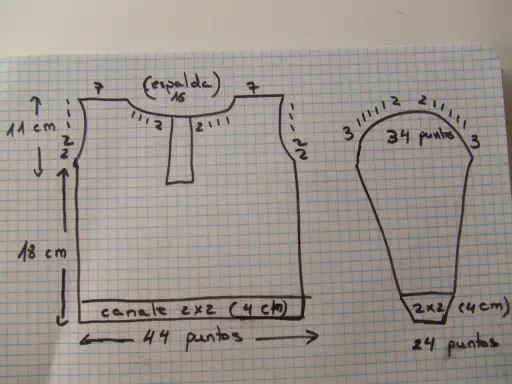 7 (espalda) 7
16
11 cm
2 2
2 2
2 2
18 cm
canale 2x2 (4 cm)
44 puntos
2 2
3 3
34 puntos
2x2 (4cm)
24 puntos